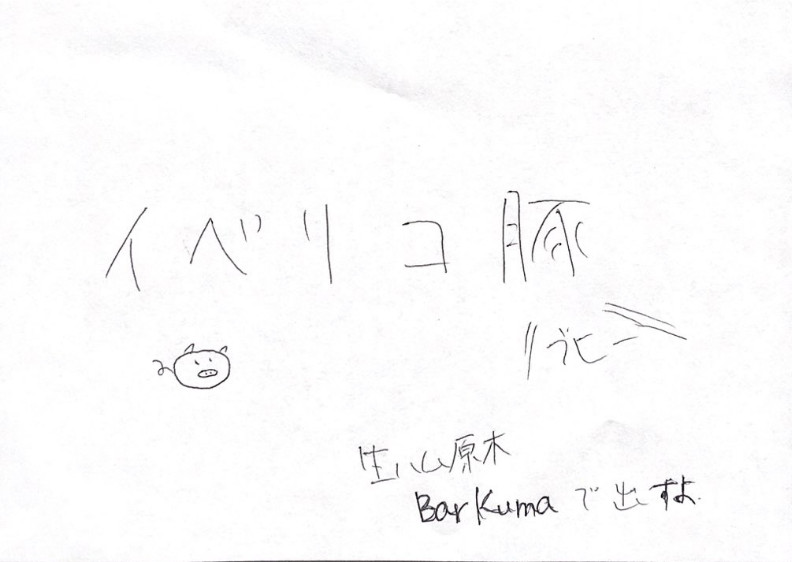 イベリコ豚
ブヒー
生ハム原木
Bar Kuma で出すよ